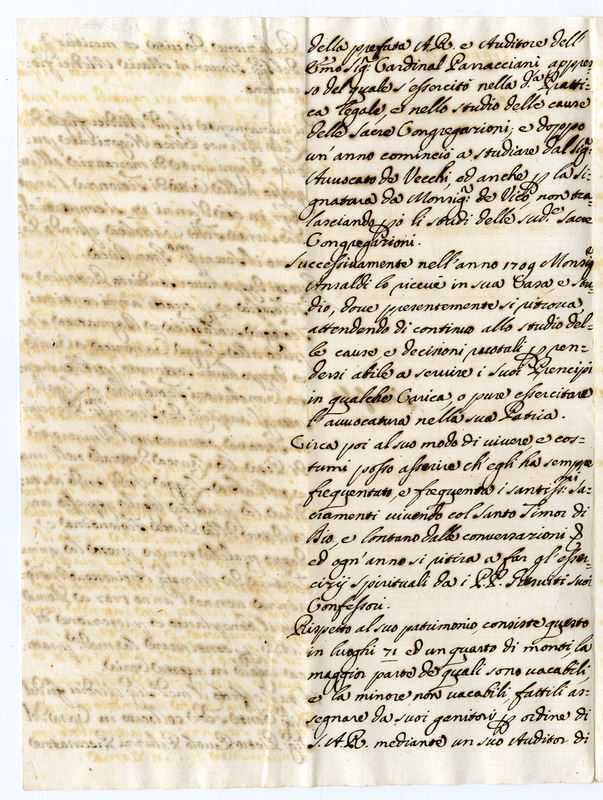 della prefata A.R. e Auditore dell'
Emo Sigr Cardinal Parracciani appres-
so del quale s'essercitò nella da Pratti-
ca legale, e nello studio delle cause
delle Sacre Congregazioni, e doppo
un'anno cominciò a studiare dal Sigr
Avvocato de Vecchi, ed anche p la Si-
gnatura da Monsigr de Vico, non tra-
lasciando pò li studi delle sude Sacre
Congregazioni.
Successivamente nell'anno 1709 Monsigr
Ansaldi lo riceve in sua Casa, e Stu-
dio, dove presentemente si ritrova
attendendo di continuo allo studio del-
le cause, e decisioni rotali p ren-
dersi abile a servire i suoi Prencipi
in qualche Carica, o pure essercitare
l'avvocatura nella sua Patria.
Circa poi al suo modo di vivere e cos-
tumi posso asserire ch'egli ha sempre
frequentato, e frequenta i santissmi Sa-
cramenti vivendo col Santo Timor di
Dio, e lontano dalle conversazioni
ed ogn'anno si ritira a far gl'esser-
cizij spirituali da i PP. Gesuiti suoi
Confessori.
Rispetto al suo patrimonio, consiste questo
in luoghi 71 ed un quarto di monti, la
maggior parte de quali sono vacabili,
e la minore non vacabili fattili as-
segnare da suoi genitori p ordine di
S.A.R. mediante un suo Auditor di